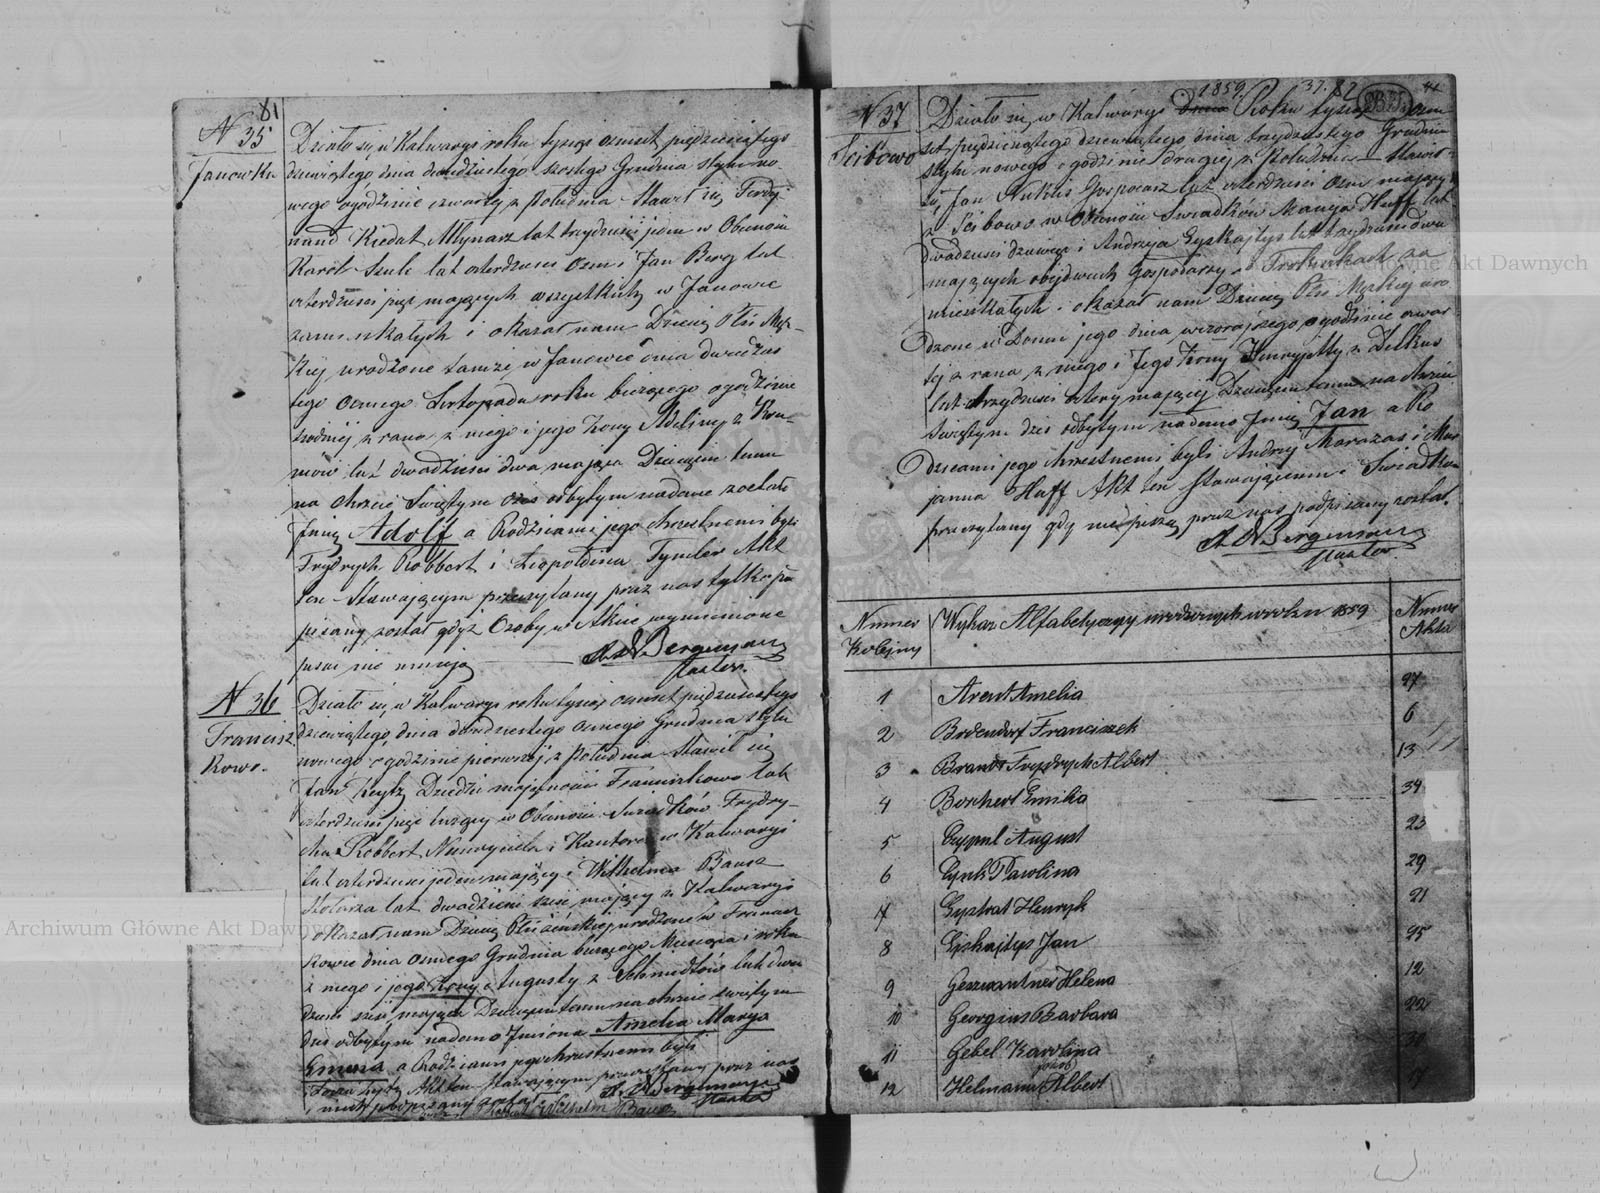 81
N 35
Janowka
Działo się w Kalwaryi roku tysiąc ośmset pięćdziesiątego
dziewiątego dnia dwudziestego szostego Grudnia stylu no-
wego o godzinie czwartej z Południa Stawił się Ferdy-
nand Kiedat Młynarz lat trzydzieści jeden w Obecności
Karola Szulc lat czterdzieści ośm i Jan Berg lat
czterdzieści pięć mających wszystkich w Janowce
zamieszkałych i okazał nam Dziecię Płci Męz-
kiej urodzone tamże w Janowce dnia dwudzies
tego osmego Listopada roku bieżącego o godzinie
z rana z niego i jego Żony Adeliny z
lat dwadzieścia dwa mająca Dziecięciu temu
na Chrzcie Swiętym dziś odbytym nadane zostało
Imię Adolf a Rodzicami jego chrzestnemi byli
Frydrych Robbert i Leopoldina Tymler Akt
ten Stawającym przeczytany przez nas tylko pod
pisany został gdyż Osoby w Akcie wymienione
pisać nie umieją
Bergmann
Pastor.
N 36
Francisz
kowo.
Działo się w Kalwaryi roku tysiąc osmset pięćdziesiątego
dziewiątego dnia dwudziestego osmego Grudnia stylu
nowego o godzinie pierwszej z Południa Stawił się
Jan Heytz Dziedzic majętności Franciszkowo lat
czterdzieści pięć liczący w Obecności Swiadków Frydry-
cha Robbert Nauczyciela i Kantora w Kalwaryi
lat czterdzieści jeden mający i Wilhelma Bausa
Stolarza lat dwadzieścia sześć mający z Kalwaryi
i okazał nam Dziecię Płci żeńskiej urodzone w Francisz
kowie dnia osmego Grudnia bieżącego Miesiąca i roku
z niego i jego Żony Augusty z Schmidtów lat dwa
dzieścia sześć mająca Dziecięciu temu na chrzcie świętym
dziś odbytym nadano Imiona Amelia Marya
Emma a Rodzicami jego chrzestnemi byli
Akt ten Stawającym przeczytany przez nas
i niemi podpisany został
Bergmann
Pastor
Wilhelm Bausa
1859. 37. 82
N 37
Scibowo
Działo się w Kalwaryi Roku tysiąc Osm
set pięćdziesiątego dziewiątego dnia trzydziestego Grudnia
stylu nowego o godzinie drugiej z Południa Stawił
się Jan Gospodarz lat czterdzieści osm mający
z Scibowo w Obecności Swiadków Macieja Huff lat
dwadzieścia dziewięć i Andrzeja Eyskajtys lat trzydzieści dwa
mających obydwuch Gospodarzy w za
mieszkałych i okazał nam Dziecię Płci Męzkiej uro
dzone w Domu jego dnia wczorajszego o godzinie czwar
tej z rana z niego i Jego Żony Henryetty z Delkus
lat trzydzieści cztery mającej Dziecięciu temu na chrzcie
świętym dziś odbytym nadano Imię Jan a Ro
dzicami jego chrzestnemi byli Andrzej Marazas i Mar
janna Huff Akt ten Stawającemu i Swiadkom
przeczytany gdy nie piszą przez nas podpisany został.
Bergmann
Pastor
Numer
Kolejny
Wykaz Alfabetyczny urodzonych w roku 1859
Numer
Aktu
1 Arent Amelia 27
2 Bodendorf Franciszek 6
3 Brandt Frydrych Albert 13
4 Borchert Emilia 34
5 August 23
6 Paulina 29
7 Henryk 21
8 Eiskajtys Jan 25
9 Geszwantner Helena 12
10 Georgius Barbara 22
11 Gebel Karolina 30
12 Helmann Albert 17
Archiwum Główne Akt Dawnych
Główne Akt Dawnych